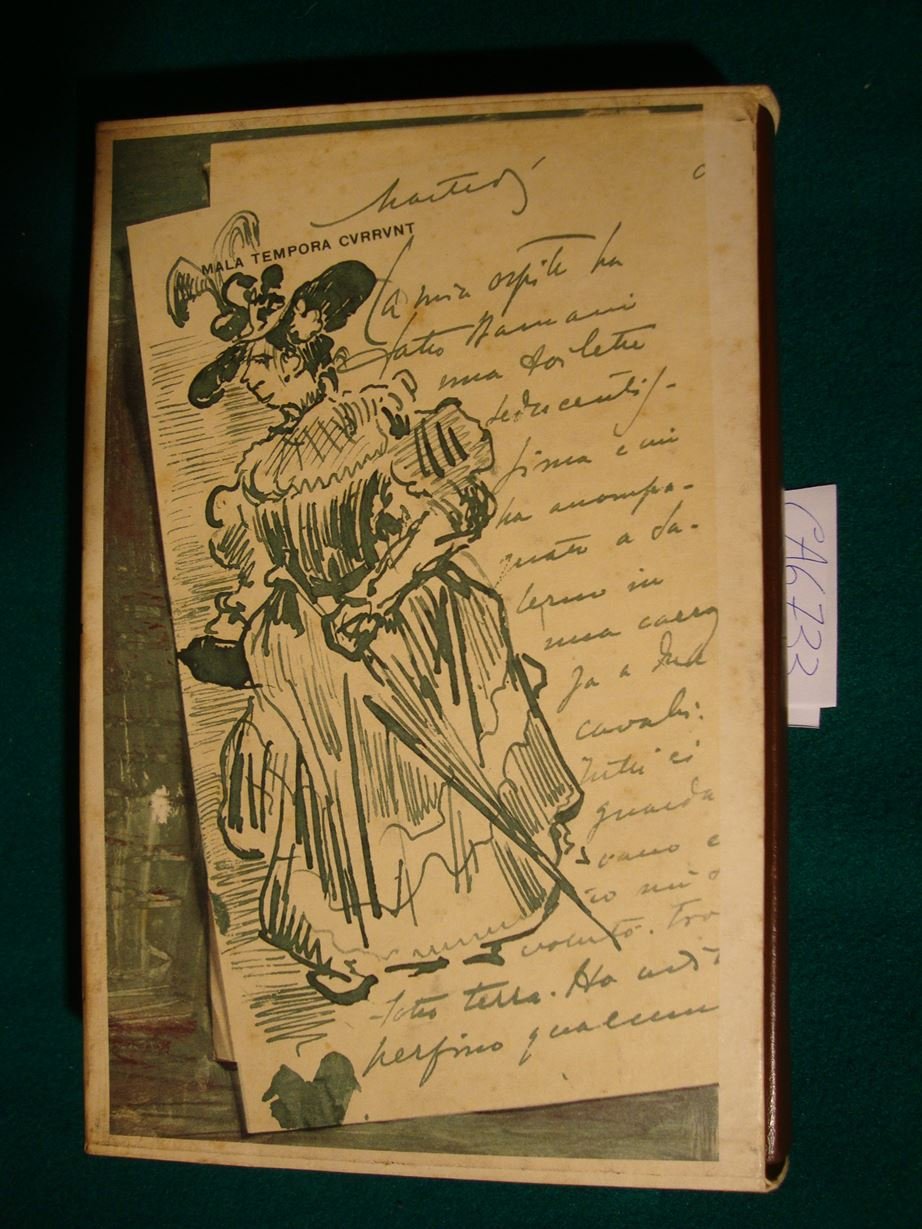 Martedì
MALA TEMPORA CVRRVNT
La mia ospite ha
fatto stamani
una toilette
seducentis-
sima e mi
ha accompa-
gnato a Sa-
lerno in
una carroz
za a due
cavalli.
Tutti ci
guarda
vano e
io mi s
voluto. tro
-totto terra. Ho udi
perfino qualcun
CA6733